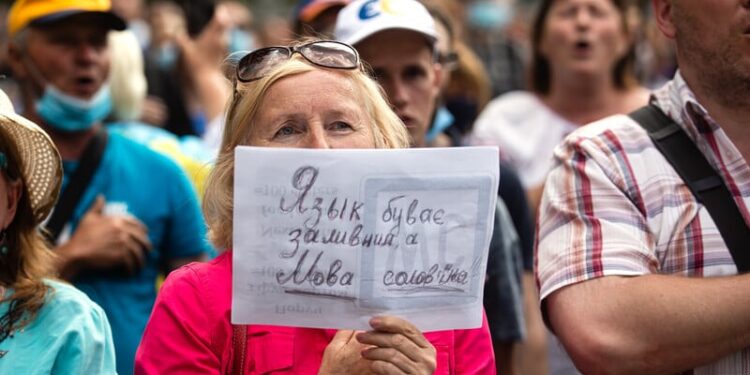 Язик буває
заливний а
Мова солов'їна"